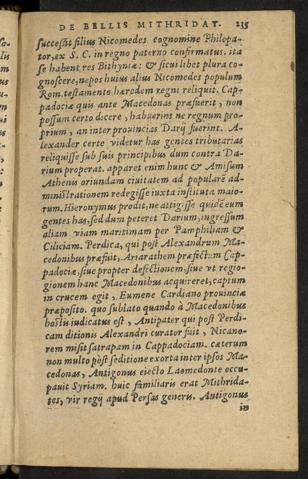 DE BELLIS MITHRIDAT. 235
successit filius Nicomedes cognomine Philopa-
tor, ex S. C. in regno paterno confirmatus. ita
se habent res Bithyniæ: & si cui libet plura co-
gnoscere, nepos huius alius Nicomedes populum
Rom. testamento hæredem regni reliquit. Cap-
padociæ quis ante Macedonas præfuerit, non
possum certo dicere, habuerint ne regnum pro-
prium, an inter prouincias Darij fuerint. A-
lexander certe videtur has gentes tributarias
reliquisse sub suis principibus dum contra Da-
rium properat. apparet enim hunc & Amisum
Athenis oriundam ciuitatem ad popularē ad-
ministrationem redegisse iuxta instituta maio-
rum. Hieronymus prodit, ne attigisse quidē eum
gentes has, sed dum peteret Darium, ingressum
aliam viam maritimam per Pamphiliam &
Ciliciam. Perdica, qui post Alexandrum Ma-
cedonibus præfuit, Ariarathem præfectum Cap-
padociæ, siue propter defectionem, siue vt regio-
gionem hanc Macedonibus acquireret, captum
in crucem egit, Eumene Cardiano prouinciæ
præposito. quo sublato quando à Macedonibus
hostis iudicatus est, Antipater qui post Perdi-
cam ditionis Alexandri curator fuit, Nicano-
rem misit satrapam in Cappadociam. cæterum
non multo pòst seditione exorta inter ipsos Ma-
cedonas, Antigonus eiecto Laomedonte occu-
pauit Syriam. huic familiaris erat Mithrida-
tes, vir regij apud Persas generis. Antigonus